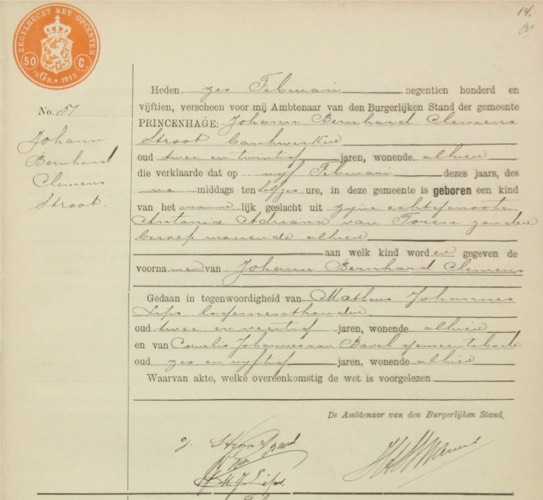 ZEGELRECHT MET OPCENTEN
50 C
1915
14.
No. 51
Johann
Bernhard
Clemens
Stroot.
Heden zes Februari negentien honderd en
vijftien, verscheen voor mij Ambtenaar van den Burgerlijken Stand der gemeente
PRINCENHAGE: Johann Bernhard Clemens
Stroot
oud twee en twintig jaren, wonende alhier
die verklaarde dat op vijf Februari dezes jaars, des
na middags ten ure, in deze gemeente is geboren een kind
van het manne lijk geslacht uit zijne echtgenoote
Antonia Adriana van zonder
beroep wonende alhier
aan welk kind word en gegeven de
voorna men van Johann Bernhard Clemens
Gedaan in tegenwoordigheid van Matheus Johannes
Lips
oud twee en jaren, wonende alhier
en van Cornelis Johannes van Bavel gemeentebode
oud zes en vijftig jaren, wonende alhier
Waarvan akte, welke overeenkomstig de wet is voorgelezen
De Ambtenaar van den Burgerlijken Stand,
M J Lips